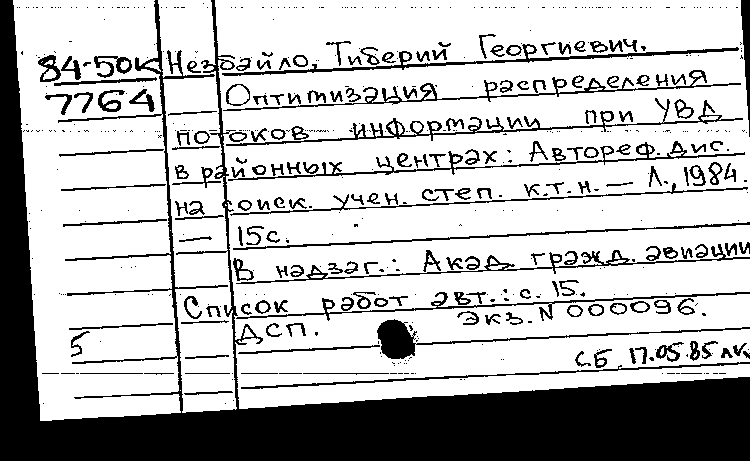 84-50к Незбайло, Тиберий Георгиевич.
7764 Оптимизация распределения
потоков информации при УВД
в районных центрах: Автореф. дис.
на соиск. учен. степ. к.т.н. — Л., 1984.
— 15с.
В надзаг.: Акад. гражд. авиации
Список работ авт.: с. 15.
ДСП. Экз. N 000096.
5
СБ 17.05.85 лк